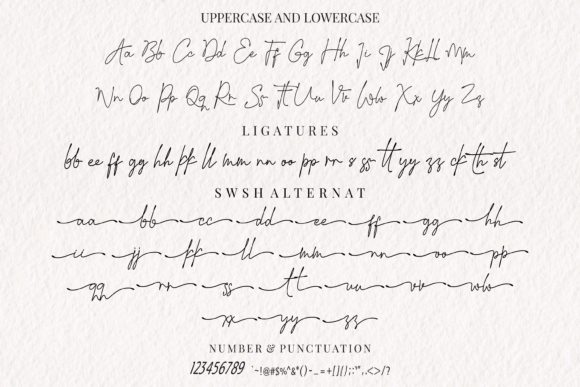 UPPERCASE AND LOWERCASE
Aa Bb Cc Dd Ee Ff Gg Hh Ii Jj Kk Ll Mm
Nn Oo Pp Qq Rr Ss Tt Uu Vv Ww Xx Yy Zz
LIGATURES
bb ee ff gg hh kk ll mm nn oo pp rr s ss tt yy zz ck th st
SWSH ALTERNAT
aa bb cc dd ee ff gg hh
ii jj kk ll mm nn oo pp
qq rr ss tt uu vv ww
xx yy zz
NUMBER & PUNCTUATION
123456789 `~!@#$%^&*()-_=+[]{};:'",.<>/?